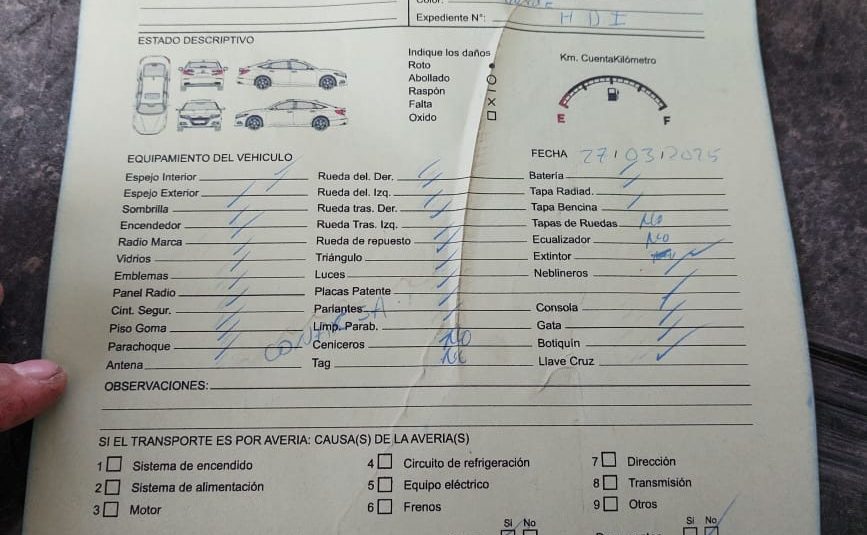 Color:
Expediente N°: HDI
ESTADO DESCRIPTIVO
Indique los daños
Roto
Abollado
Raspón
Falta
Oxido
Km. CuentaKilómetro
E F
EQUIPAMIENTO DEL VEHICULO
FECHA 27/03/2025
Espejo Interior Rueda del. Der. Batería
Espejo Exterior Rueda del. Izq. Tapa Radiad.
Sombrilla Rueda tras. Der. Tapa Bencina
Encendedor Rueda Tras. Izq. Tapas de Ruedas No
Radio Marca Rueda de repuesto Ecualizador No
Vidrios Triángulo Extintor
Emblemas Luces Neblineros
Panel Radio Placas Patente
Cint. Segur. Parlantes Consola
Piso Goma Limp. Parab. Gata
Parachoque Ceniceros No Botiquín
Antena Tag No Llave Cruz
OBSERVACIONES:
SI EL TRANSPORTE ES POR AVERIA: CAUSA(S) DE LA AVERIA(S)
1 Sistema de encendido 4 Circuito de refrigeración 7 Dirección
2 Sistema de alimentación 5 Equipo eléctrico 8 Transmisión
3 Motor 6 Frenos 9 Otros
Si No Si No